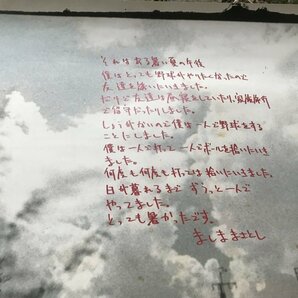 それはある暑い夏の午後
僕はとっても野球がやりたくなったので
友達を誘いにいきました。
だけど友達は昼寝をしていたり、家族旅行
で留守だったりしました。
しょうがないので僕は一人で野球をする
ことにしました。
僕は一人で打って一人でボールを拾いにいき
ました。
何度も何度も打っては拾いにいきました。
日が暮れるまで ずうっと一人で
やってました。
とっても暑かったです。
ましままさとし